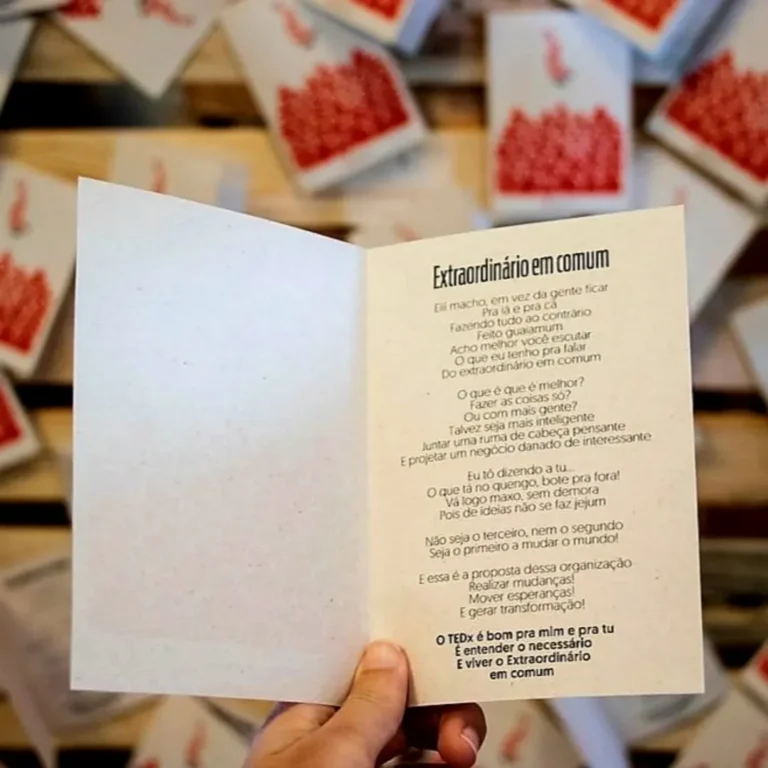 Extraordinário em comum
Eii macho, em vez da gente ficar
Pra lá e pra cá
Fazendo tudo ao contrário
Feito guaiamum
Acho melhor você escutar
O que eu tenho pra falar
Do extraordinário em comum
O que é que é melhor?
Fazer as coisas só?
Ou com mais gente?
Talvez seja mais inteligente
Juntar uma ruma de cabeça pensante
E projetar um negócio danado de interessante
Eu tô dizendo a tu...
O que tá no quengo, bote pra fora!
Vá logo maxo, sem demora
Pois de ideias não se faz jejum
Não seja o terceiro, nem o segundo
Seja o primeiro a mudar o mundo!
E essa é a proposta dessa organização
Realizar mudanças!
Mover esperanças!
E gerar transformação!
O TEDx é bom pra mim e pra tu
É entender o necessário
E viver o Extraordinário
em comum